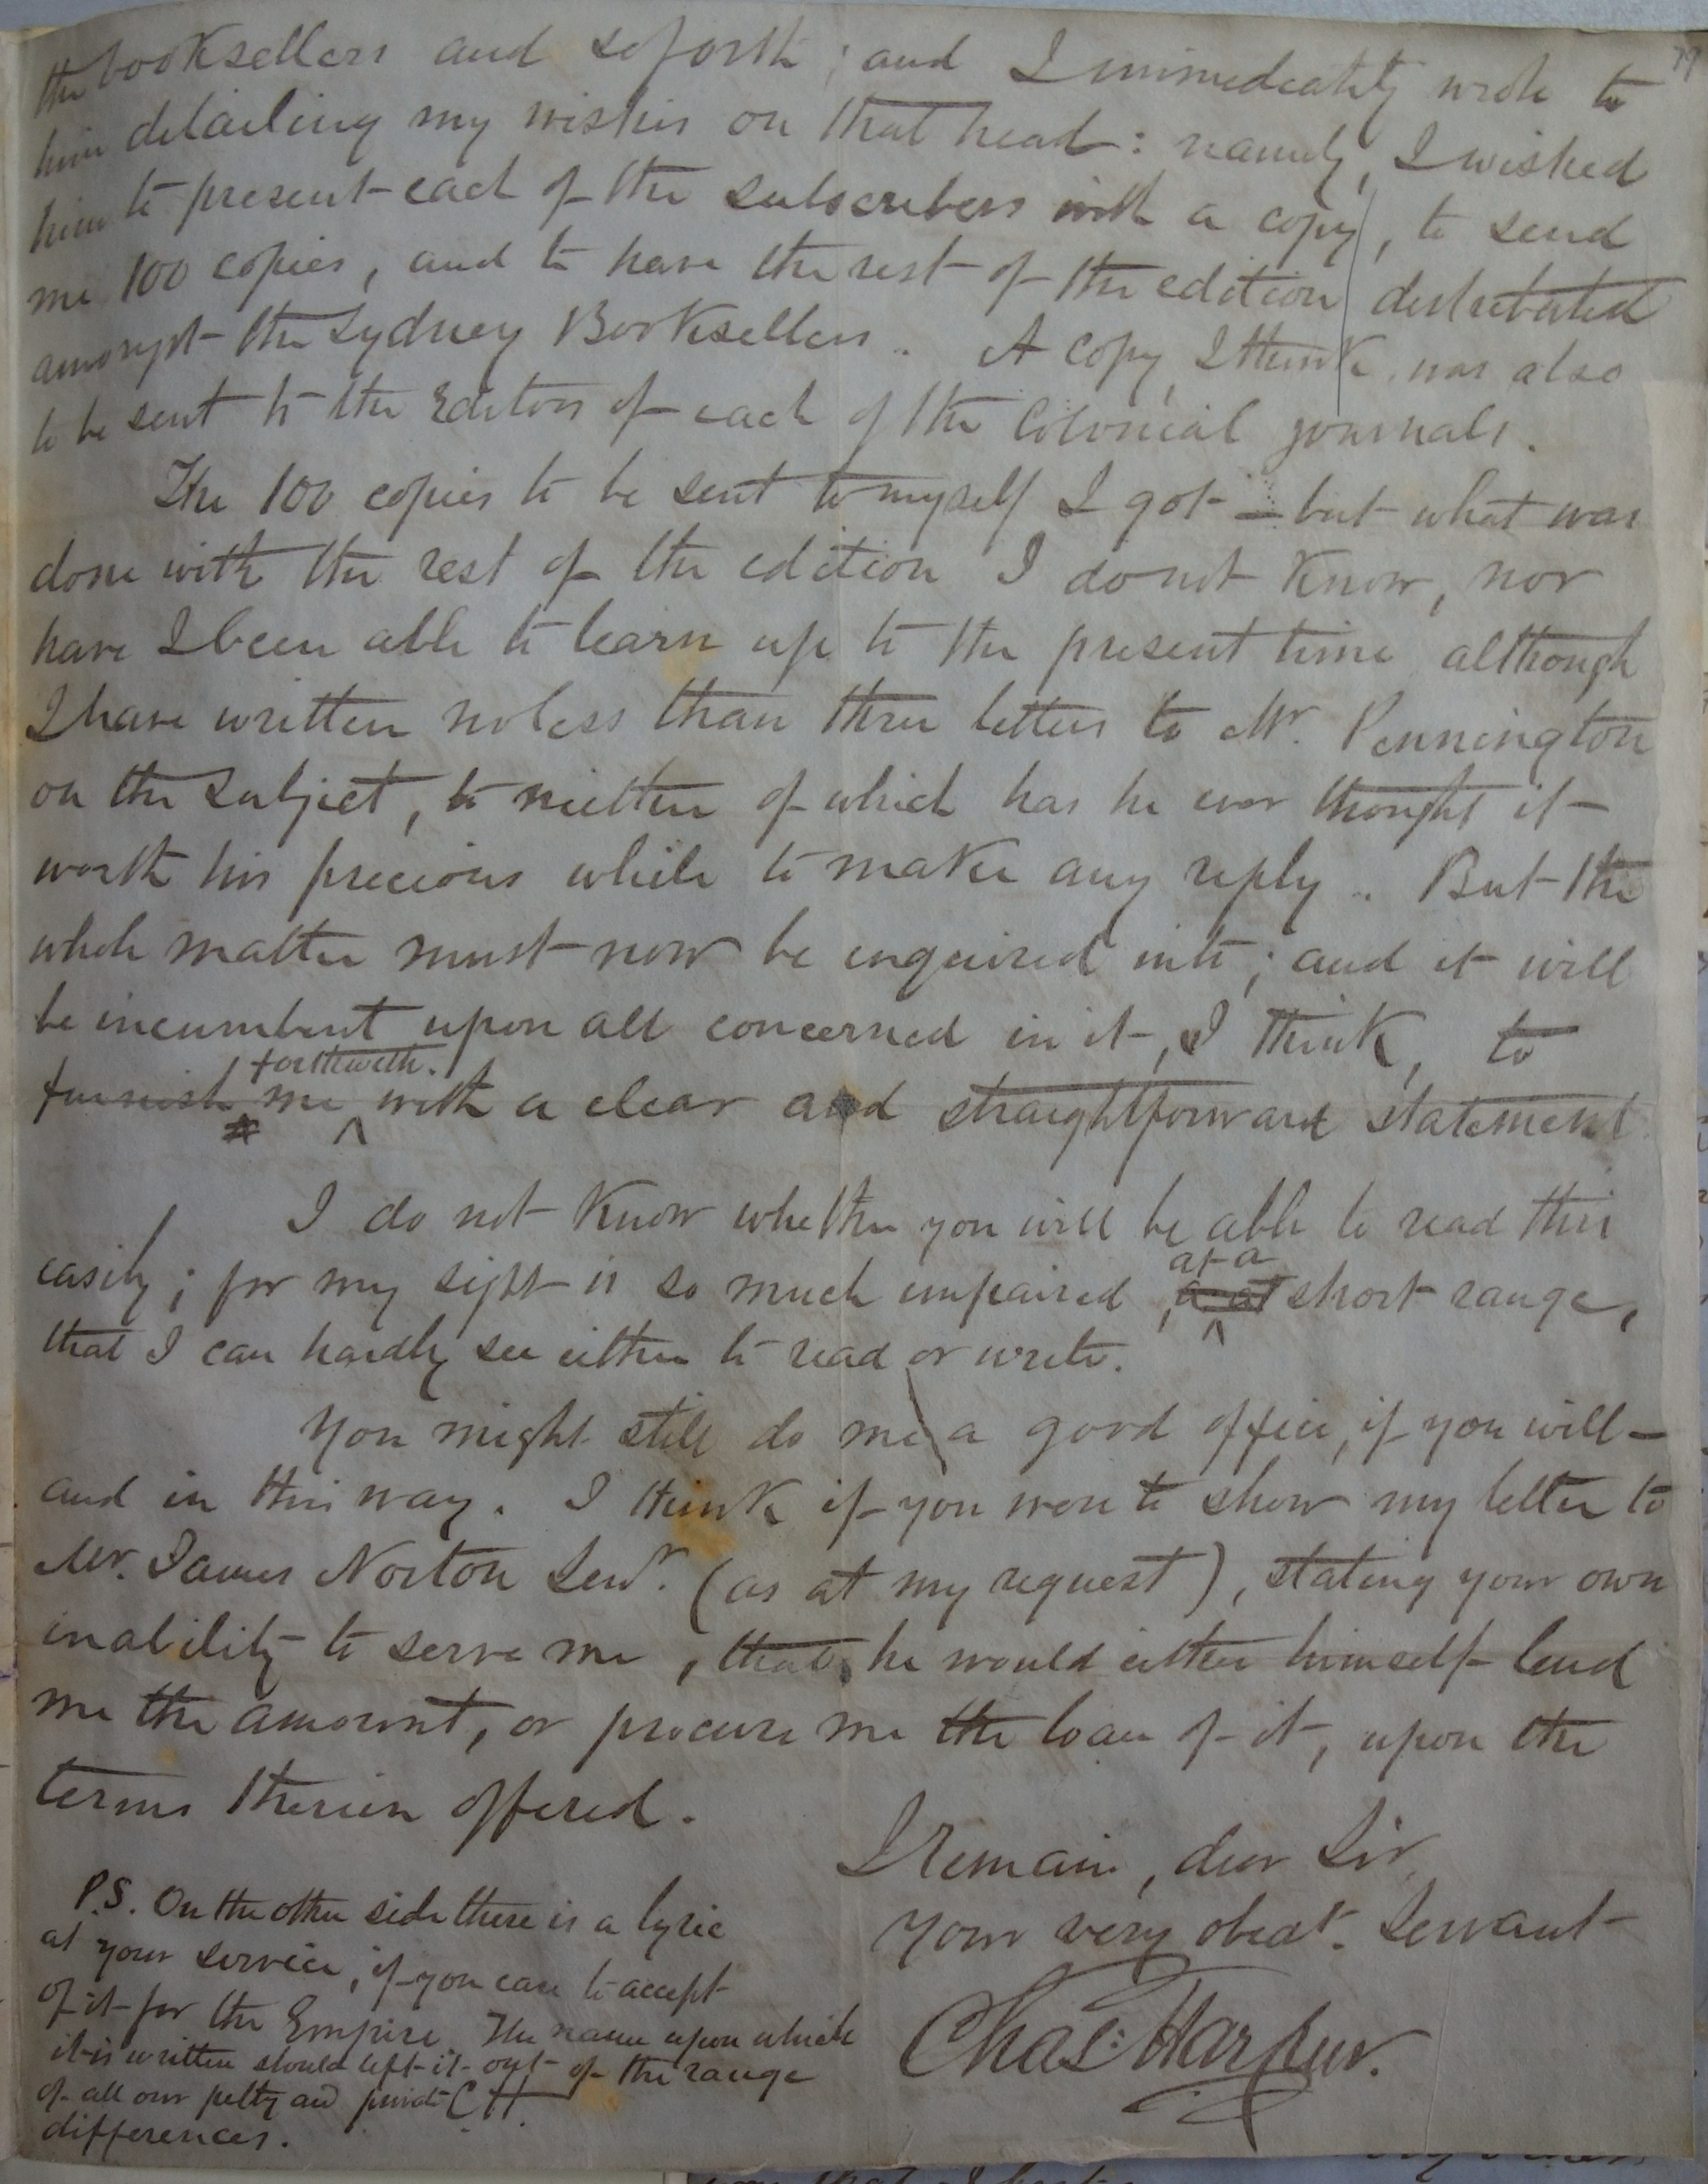 79
the booksellers and so forth; and I immediately wrote to
him detailing my wishes on that head: namely, I wished
him to present each of the subscribers with a copy, to send
me 100 copies, and to have the rest of the edition distributed
amongst the Sydney Booksellers. A copy, I think, was also
to be sent to the Editors of each of the Colonial journals.
The 100 copies to be sent to myself I got — but what was
done with the rest of the edition I do not know, nor
have I been able to learn up to the present time although
I have written no less than three letters to Mr. Pennington
on the subject, to neither of which has he ever thought it
worth his precious while to make any reply. But the
whole matter must now be enquired into; and it will
be incumbent upon all concerned in it, I think, to
forthwith.
furnish me with a clear and straightforward statement
I do not know whether you will be able to read this
easily; for my sight is so much impaired, at a short range,
that I can hardly see either to read or write.
You might still do me a good office, if you will —
and in this way. I think if you were to show my letter to
Mr. James Norton Senr. (as at my request), stating your own
inability to serve me, that he would either himself lend
me the amount, or procure me the loan of it, upon the
terms therein offered.
I remain, dear Sir,
your very obedt. Servant
Chas: Harpur.
P.S. On the other side there is a lyric
at your service, if you care to accept
of it for the Empire. The name upon which
it is written should left it out of the range
of all our petty and private C H.
differences.